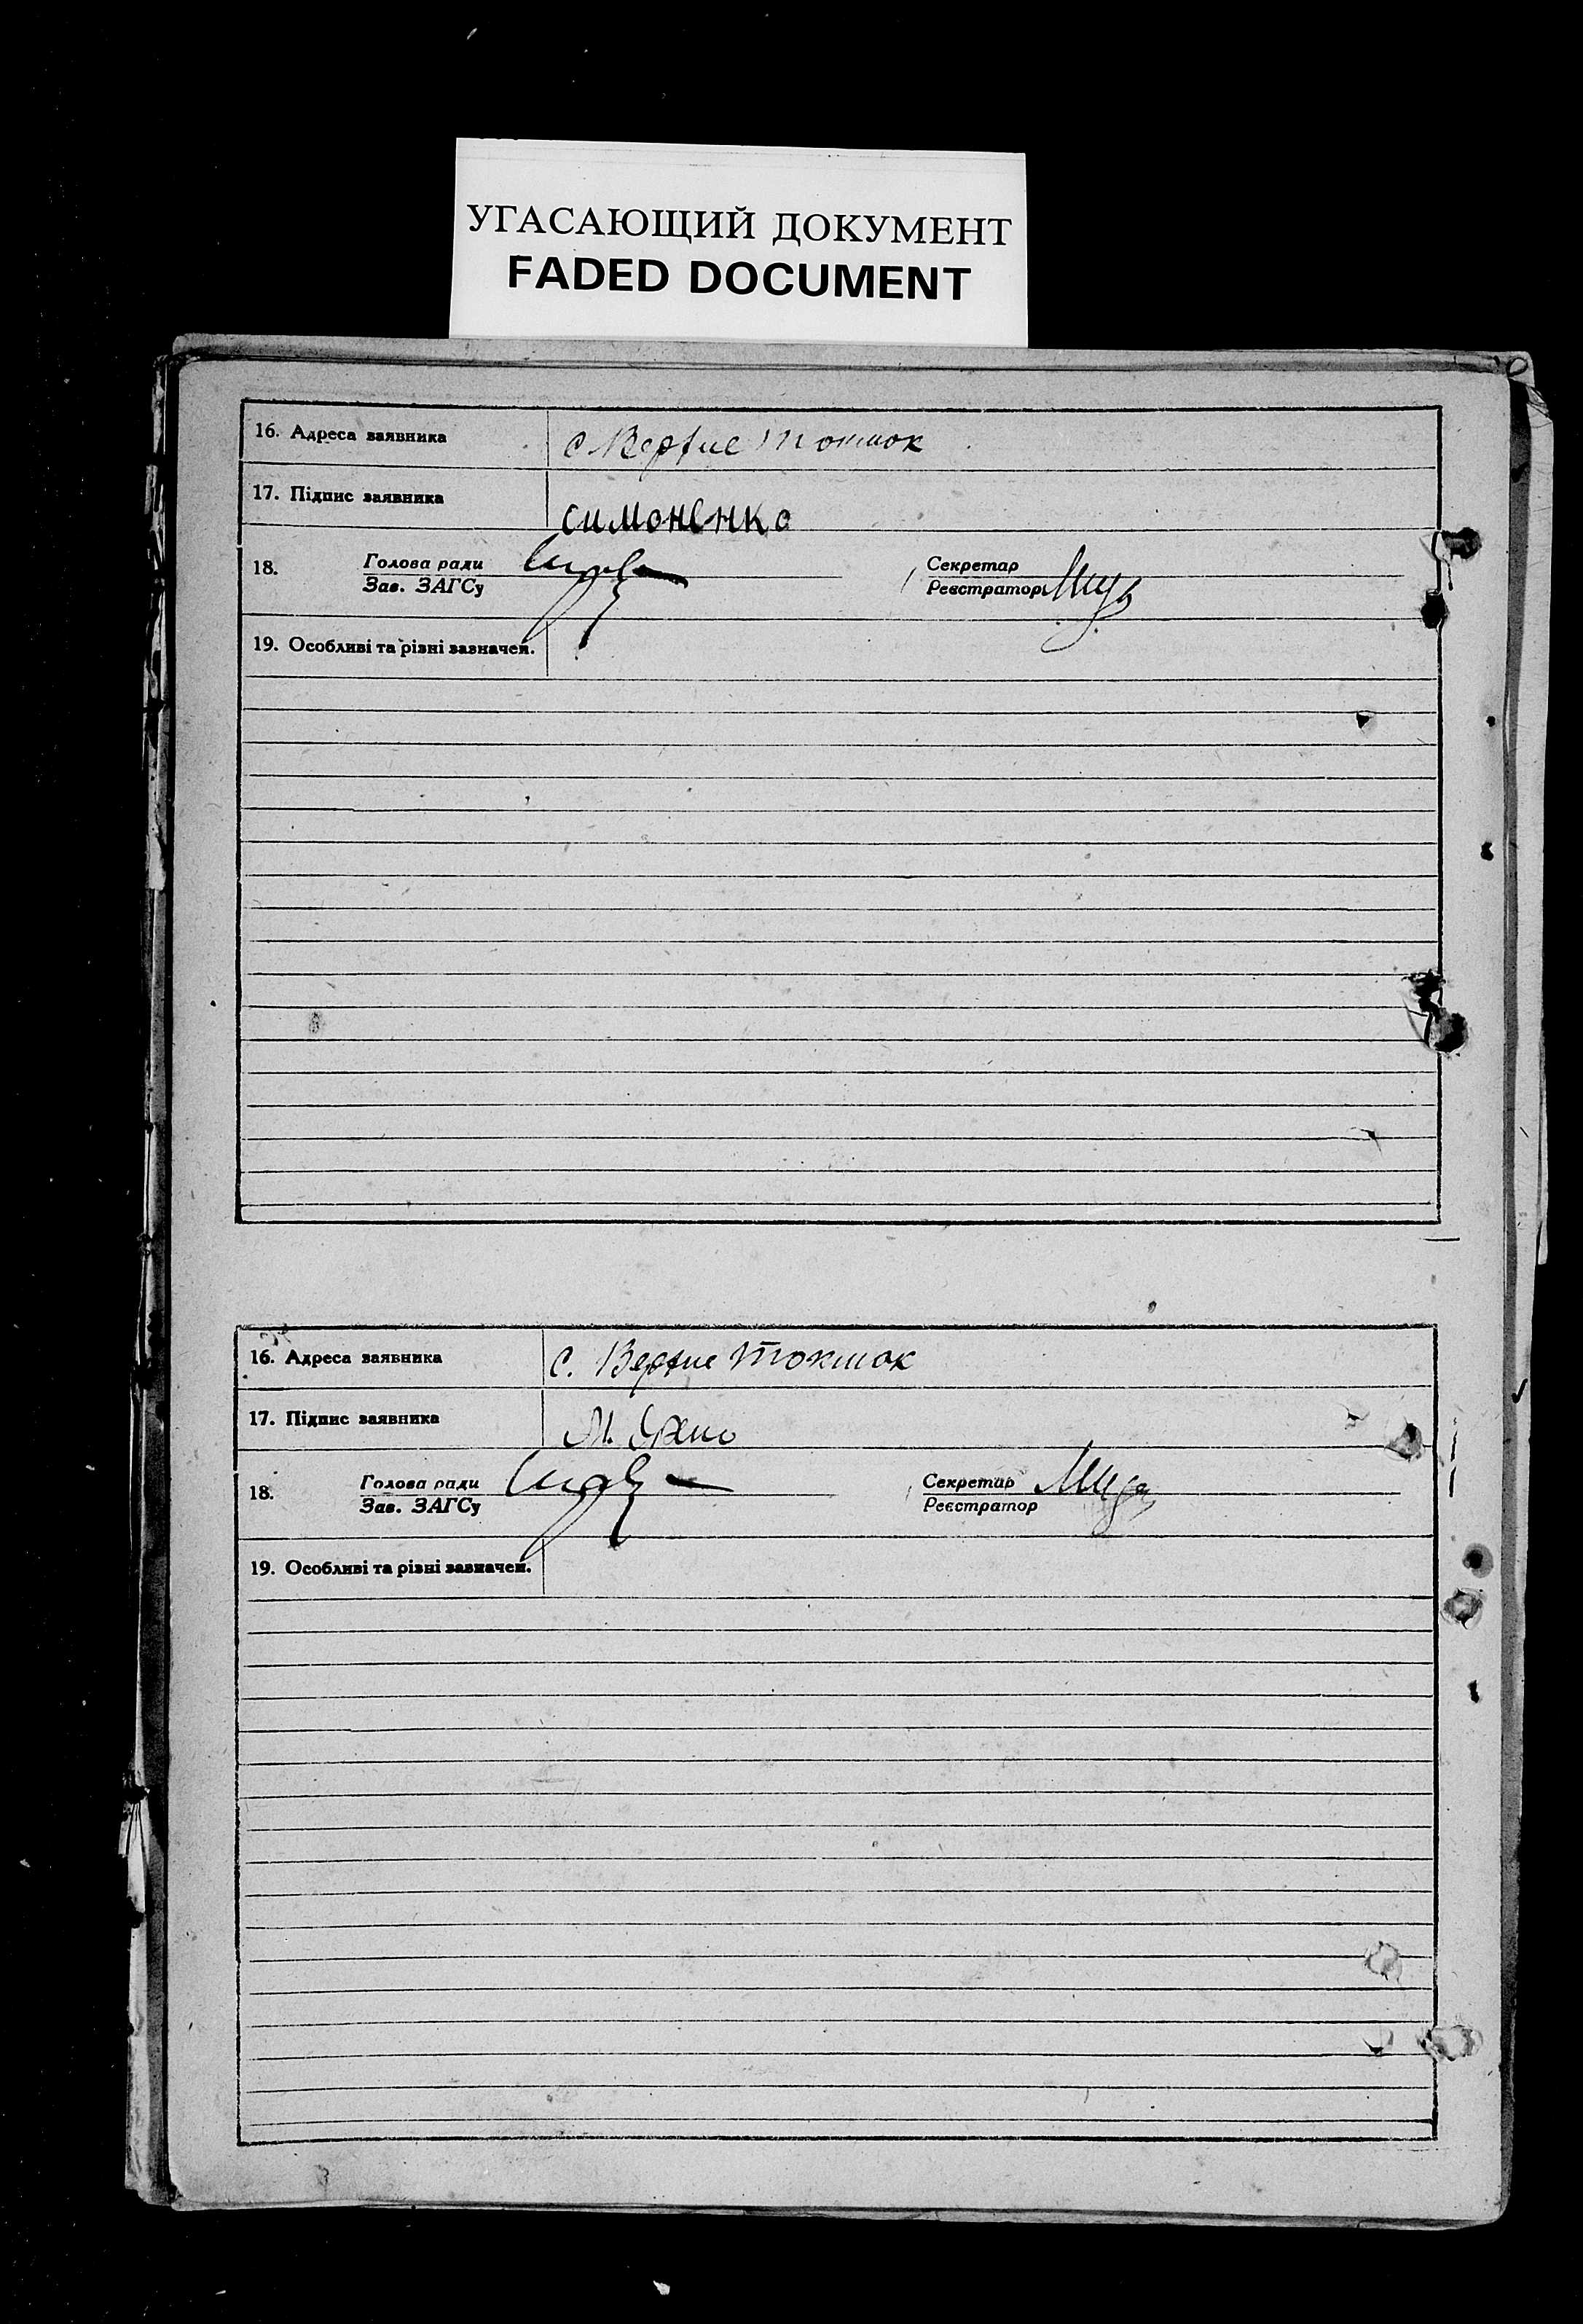 УГАСАЮЩИЙ ДОКУМЕНТ
FADED DOCUMENT
16. Адреса заявника с Верхне Токмак
17. Підпис заявника Симоненко
18. Голова ради Секретар
Зав. ЗАГСу Реєстратор
19. Особливі та різні зазначен.
16. Адреса заявника С. Верхне Токмак
17. Підпис заявника М.
18. Голова ради Секретар
Зав. ЗАГСу Реєстратор
19. Особливі та різні зазначен.